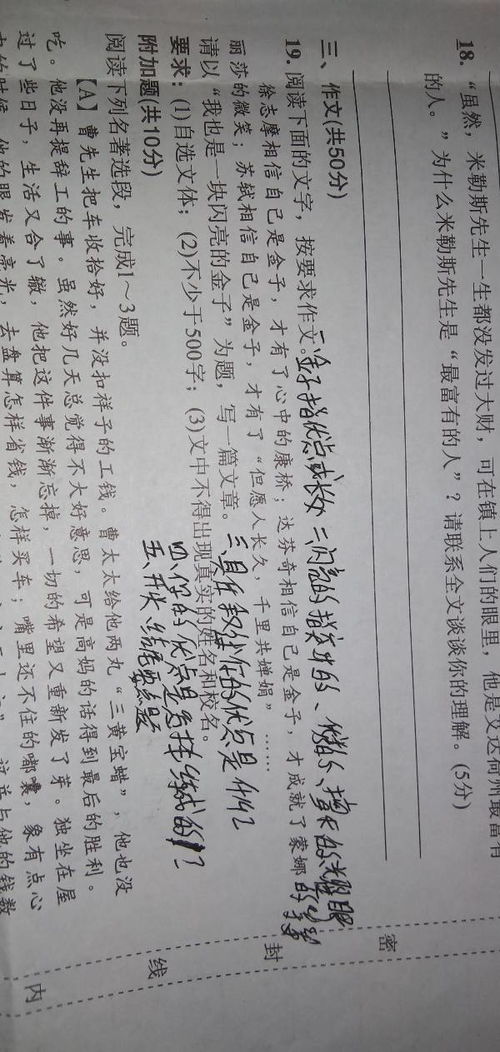 18. “虽然，米勒斯先生一生都没发过大财，可在镇上人们的眼里，他是艾达荷州最富有
的人。”为什么米勒斯先生是“最富有的人”？请联系全文谈谈你的理解。(5分)
三、作文(共50分)
19. 阅读下面的文字，按要求作文。
一、金子指优点或长处 二、闪亮的 指突出的、
徐志摩相信自己是金子，才有了心中的康桥；达芬奇相信自己是金子，才成就了蒙娜
丽莎的微笑；苏轼相信自己是金子，才有了“但愿人长久，千里共婵娟”……
请以“我也是一块闪亮的金子”为题，写一篇文章。
三、具体叙述你的优点是什么？
要求：(1)自选文体；(2)不少于500字；(3)文中不得出现真实的姓名和校名。
四、你的优点是怎样练成的？
五、开头、结尾要点题
附加题(共10分)
阅读下列名著选段，完成1～3题。
【A】 曹先生把车收拾好，并没扣祥子的工钱。曹太太给他两丸“三黄宝蜡”，他也没
吃。他没再提辞工的事。虽然好几天总觉得不大好意思，可是高妈的话得到最后的胜利。
过了些日子，生活又合了辙，他把这件事渐渐忘掉，一切的希望又重新发了芽。独坐在屋
中的时候，他的眼发着亮光，去盘算怎样省钱，怎样买车；嘴里还不住的嘟囔，象有点心
密
封
线
内